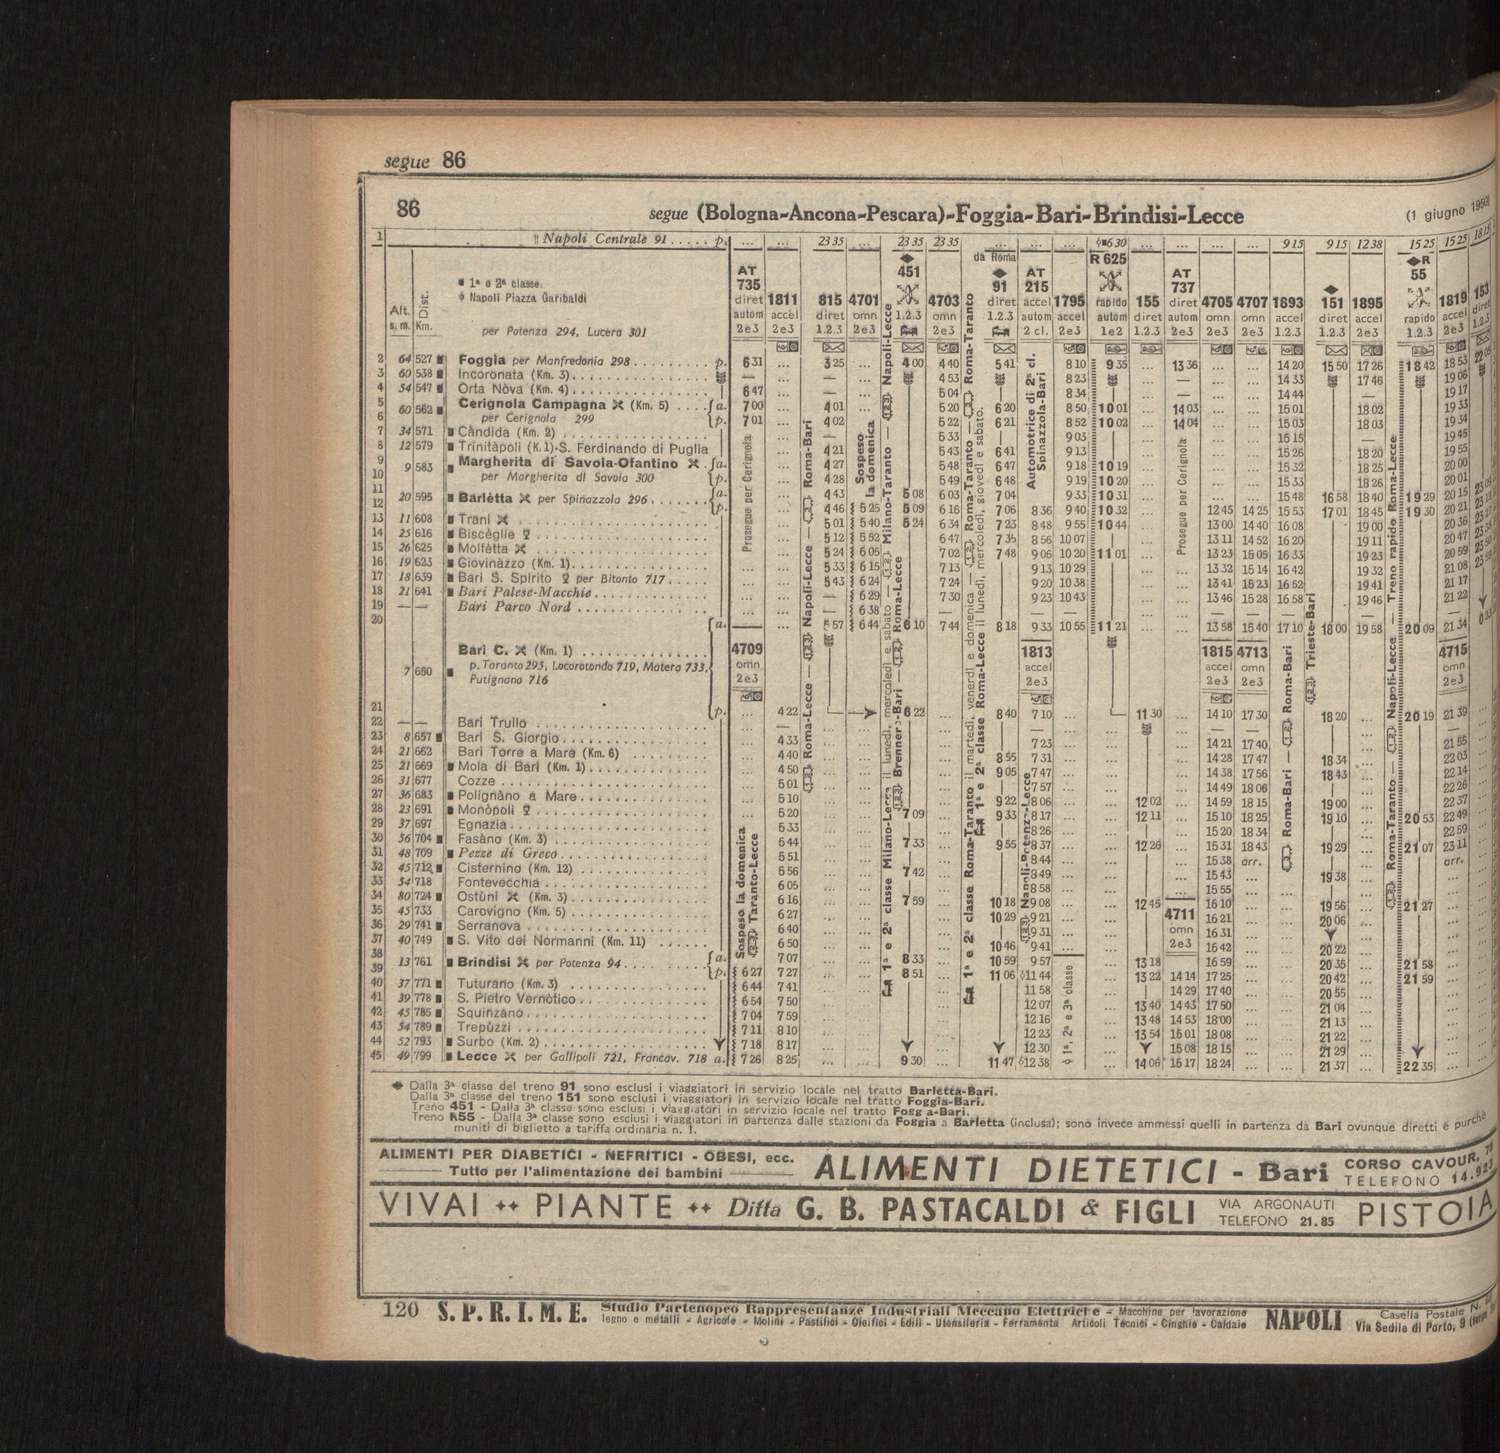 segue 86
86 segue (Bologna-Ancona-Pescara)-Foggia-Bari-Brindisi-Lecce (1 giugno 1950)
1 Napoli Centrale 91 . . . . . p. ... ... 23 35 ... 23 35 23 35 ... ... ... 6 30 ... ... ... ... 9 15 9 15 12 38 15 25 15 25 18 15
1ª e 2ª classe.
Napoli Piazza Garibaldi
Alt. s. m. Dist. Km.
per Potenza 294, Lucera 301
AT 735 diret autom 2e3
1811 accel 2e3
815 diret 1.2.3
4701 omn 2e3
451 1.2.3
4703 omn 2e3
da Roma 91 diret 1.2.3
AT 215 accel autom 2 cl.
1795 accel 2e3
R 625 rapido autom 1e2
155 diret 1.2.3
AT 737 diret autom 2e3
4705 omn 2e3
4707 omn 2e3
1893 accel 1.2.3
151 diret 1.2.3
1895 accel 2e3
R 55 rapido 1.2.3
1819 accel 2e3
153 diret 1.2.3
2 64 527 Foggia per Manfredonia 298 . . . p. 6 31 ... 3 25 ... 4 00 4 40 5 41 8 10 9 35 ... 13 36 ... ... 14 20 15 50 17 26 18 42 18 53
3 60 538 Incoronata (Km. 3) 4 53 8 23 14 33 17 46 19 06
4 54 547 Orta Nòva (Km. 4) 6 47 5 04 8 34 14 44 19 17
5 60 562 Cerignola Campagna (Km. 5) a. 7 00 4 01 5 20 6 20 8 50 10 01 14 03 15 01 18 02 19 33
6 per Cerignola 299 p. 7 01 4 02 5 22 6 21 8 52 10 02 14 04 15 03 18 03 19 34
7 34 571 Càndida (Km. 2) 5 33 9 03 15 15 19 45
8 12 579 Trinitàpoli (K.1)-S. Ferdinando di Puglia 4 21 5 43 6 41 9 13 15 26 18 20 19 55
9 9 583 Margherita di Savoia-Ofantino a. 4 27 5 48 6 47 9 18 10 19 15 32 18 25 20 00
10 per Margherita di Savoia 300 p. 4 28 5 49 6 48 9 19 10 20 15 33 18 26 20 01
11 20 595 Barlètta per Spinazzola 296 a. 4 43 5 08 6 03 7 04 9 33 10 31 15 48 16 58 18 40 19 29 20 15
12 p. 4 46 5 25 5 09 6 16 7 06 8 36 9 40 10 32 12 45 14 25 15 53 17 01 18 45 19 30 20 21
13 11 608 Trani 5 01 5 40 5 24 6 34 7 23 8 48 9 55 10 44 13 00 14 40 16 08 19 00 20 36
14 25 616 Biscèglie 5 12 5 52 6 47 7 35 8 56 10 07 13 11 14 52 16 20 19 11 20 47
15 26 625 Molfètta 5 24 6 05 7 02 7 48 9 06 10 20 11 01 13 23 15 05 16 33 19 23 20 59
16 19 623 Giovinàzzo (Km. 1) 5 33 6 15 7 13 9 13 10 29 13 32 15 14 16 42 19 32 21 08
17 18 639 Bari S. Spirito per Bitonto 717 5 43 6 24 7 24 9 20 10 38 13 41 15 23 16 52 19 41 21 17
18 21 641 Bari Palese-Macchie 6 29 7 30 9 23 10 43 13 46 15 28 16 58 19 46 21 22
19 — — Bari Parco Nord 6 38
20 a. 5 57 6 44 6 10 7 44 8 18 9 33 10 55 11 21 13 58 15 40 17 10 18 00 19 58 20 09 21 34
7 650 Bari C. (Km. 1)
p. Taranto 295, Locorotondo 719, Matera 733,
Putignano 716
4709 omn 2e3
1813 accel 2e3
1815 accel 2e3
4713 omn 2e3
4715 omn 2e3
21 p. ... 4 22 6 22 8 40 7 10 11 30 14 10 17 30 18 20 20 19 21 39
22 — — Bari Trullo
23 8 657 Bari S. Giorgio 4 33 7 23 14 21 17 40 21 55
24 21 662 Bari Torre a Mare (Km. 6) 4 40 8 55 7 31 14 28 17 47 18 34 22 03
25 21 669 Mola di Bari (Km. 1) 4 50 9 05 7 47 14 38 17 56 18 43 22 14
26 31 677 Cozze 5 01 7 57 14 49 18 06 22 26
27 36 683 Polignàno a Mare 5 10 9 22 8 06 12 02 14 59 18 15 19 00 22 37
28 23 691 Monòpoli 5 20 7 09 9 33 8 17 12 11 15 10 18 25 19 10 20 53 22 49
29 37 697 Egnazia 5 33 8 26 15 20 18 34 22 59
30 56 704 Fasàno (Km. 3) 5 44 7 33 9 55 8 37 12 26 15 31 18 43 19 29 21 07 23 11
31 48 709 Pezze di Greco 5 51 8 44 15 38 arr. arr.
32 45 712 Cisternino (Km. 12) 5 56 7 42 8 49 15 43 19 38
33 54 718 Fontevecchia 6 05 8 58 15 55
34 80 724 Ostùni (Km. 3) 6 16 7 59 10 18 9 08 12 45 16 10 19 56 21 27
35 45 733 Carovigno (Km. 5) 6 27 10 29 9 21 4711 16 21 20 06
36 29 741 Serranova 6 40 9 31 omn 16 31
37 40 749 S. Vito dei Normanni (Km. 11) 6 50 10 46 9 41 2e3 16 42 20 22
38 13 761 Brindisi per Potenza 94 a. 7 07 8 33 10 59 9 57 13 18 16 59 20 35 21 58
39 p. 6 27 7 27 8 51 11 06 11 44 13 22 14 14 17 25 20 42 21 59
40 37 771 Tuturano (Km. 3) 6 44 7 41 11 58 14 29 17 40 20 55
41 39 778 S. Pietro Vernòtico 6 54 7 50 12 07 13 40 14 43 17 50 21 04
42 45 785 Squinzano 7 04 7 59 12 16 13 48 14 53 18 00 21 13
43 54 789 Trepùzzi 7 11 8 10 12 23 13 54 15 01 18 08 21 22
44 52 793 Surbo (Km. 2) 7 18 8 17 12 30 15 08 18 15 21 29
45 49 799 Lecce per Gallipoli 721, Francav. 718 a. 7 26 8 25 9 30 11 47 12 38 14 06 15 17 18 24 21 37 22 35
Prosegue per Cerignola
Sospeso la domenica
Taranto-Lecce
Roma-Lecce — Napoli-Lecce — Roma-Bari
Sospeso la domenica
1ª e 2ª classe Milano-Lecce il lunedì, mercoledì e sabato — Milano-Taranto — Napoli-Lecce
Brennero-Bari — Roma-Lecce
1ª e 2ª classe Roma-Taranto il martedì, venerdì e domenica — Roma-Taranto — Roma-Taranto
1ª e 2ª classe Roma-Lecce il lunedì, mercoledì, giovedì e sabato.
Automotrice di 2ª cl. Spinazzola-Bari
Napoli-Potenza-Lecce
1ª, 2ª e 3ª classe
Prosegue per Cerignola
Roma-Bari — Roma-Bari
Trieste-Bari
Roma-Taranto — Napoli-Lecce — Treno rapido Roma-Lecce
Dalla 3ª classe del treno 91 sono esclusi i viaggiatori in servizio locale nel tratto Barletta-Bari.
Dalla 3ª classe del treno 151 sono esclusi i viaggiatori in servizio locale nel tratto Foggia-Bari.
Treno 451 - Dalla 3ª classe sono esclusi i viaggiatori in servizio locale nel tratto Foggia-Bari.
Treno R55 - Dalla 3ª classe sono esclusi i viaggiatori in partenza dalle stazioni da Foggia a Barletta (inclusa); sono invece ammessi quelli in partenza da Bari ovunque diretti e purchè
muniti di biglietto a tariffa ordinaria n. 1.
ALIMENTI PER DIABETICI - NEFRITICI - OBESI, ecc.
Tutto per l'alimentazione dei bambini
ALIMENTI DIETETICI - Bari CORSO CAVOUR, 78
TELEFONO 14.925
VIVAI ++ PIANTE ++ Ditta G. B. PASTACALDI & FIGLI VIA ARGONAUTI
TELEFONO 21.85 PISTOIA
120 S.P.R.I.M.E. Studio Partenopeo Rappresentanze Industriali Meccano Elettriche - Macchine per lavorazione
legno e metalli - Agricole - Molini - Pastifici - Oleifici - Edili - Utensileria - Ferramenta Articoli Tecnici - Cinghie - Caldaie
NAPOLI Casella Postale N.
Via Sedile di Porto, 9